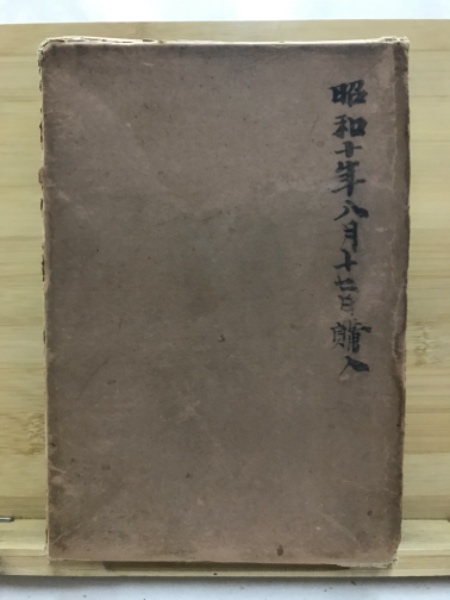 昭和十年八月十七日購入